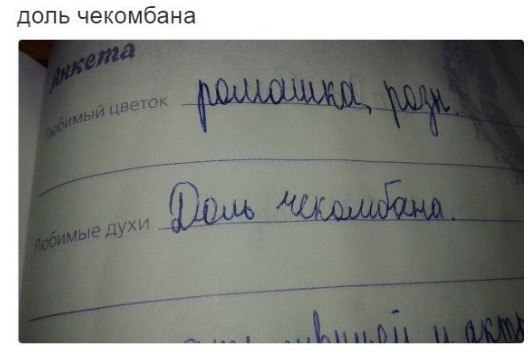 доль чекомбана
Анкета
Любимый цветок ромашка, розы.
Любимые духи Доль чекомбана.